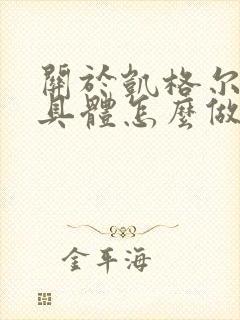 關於凱格尔
具體怎麼做
金平海